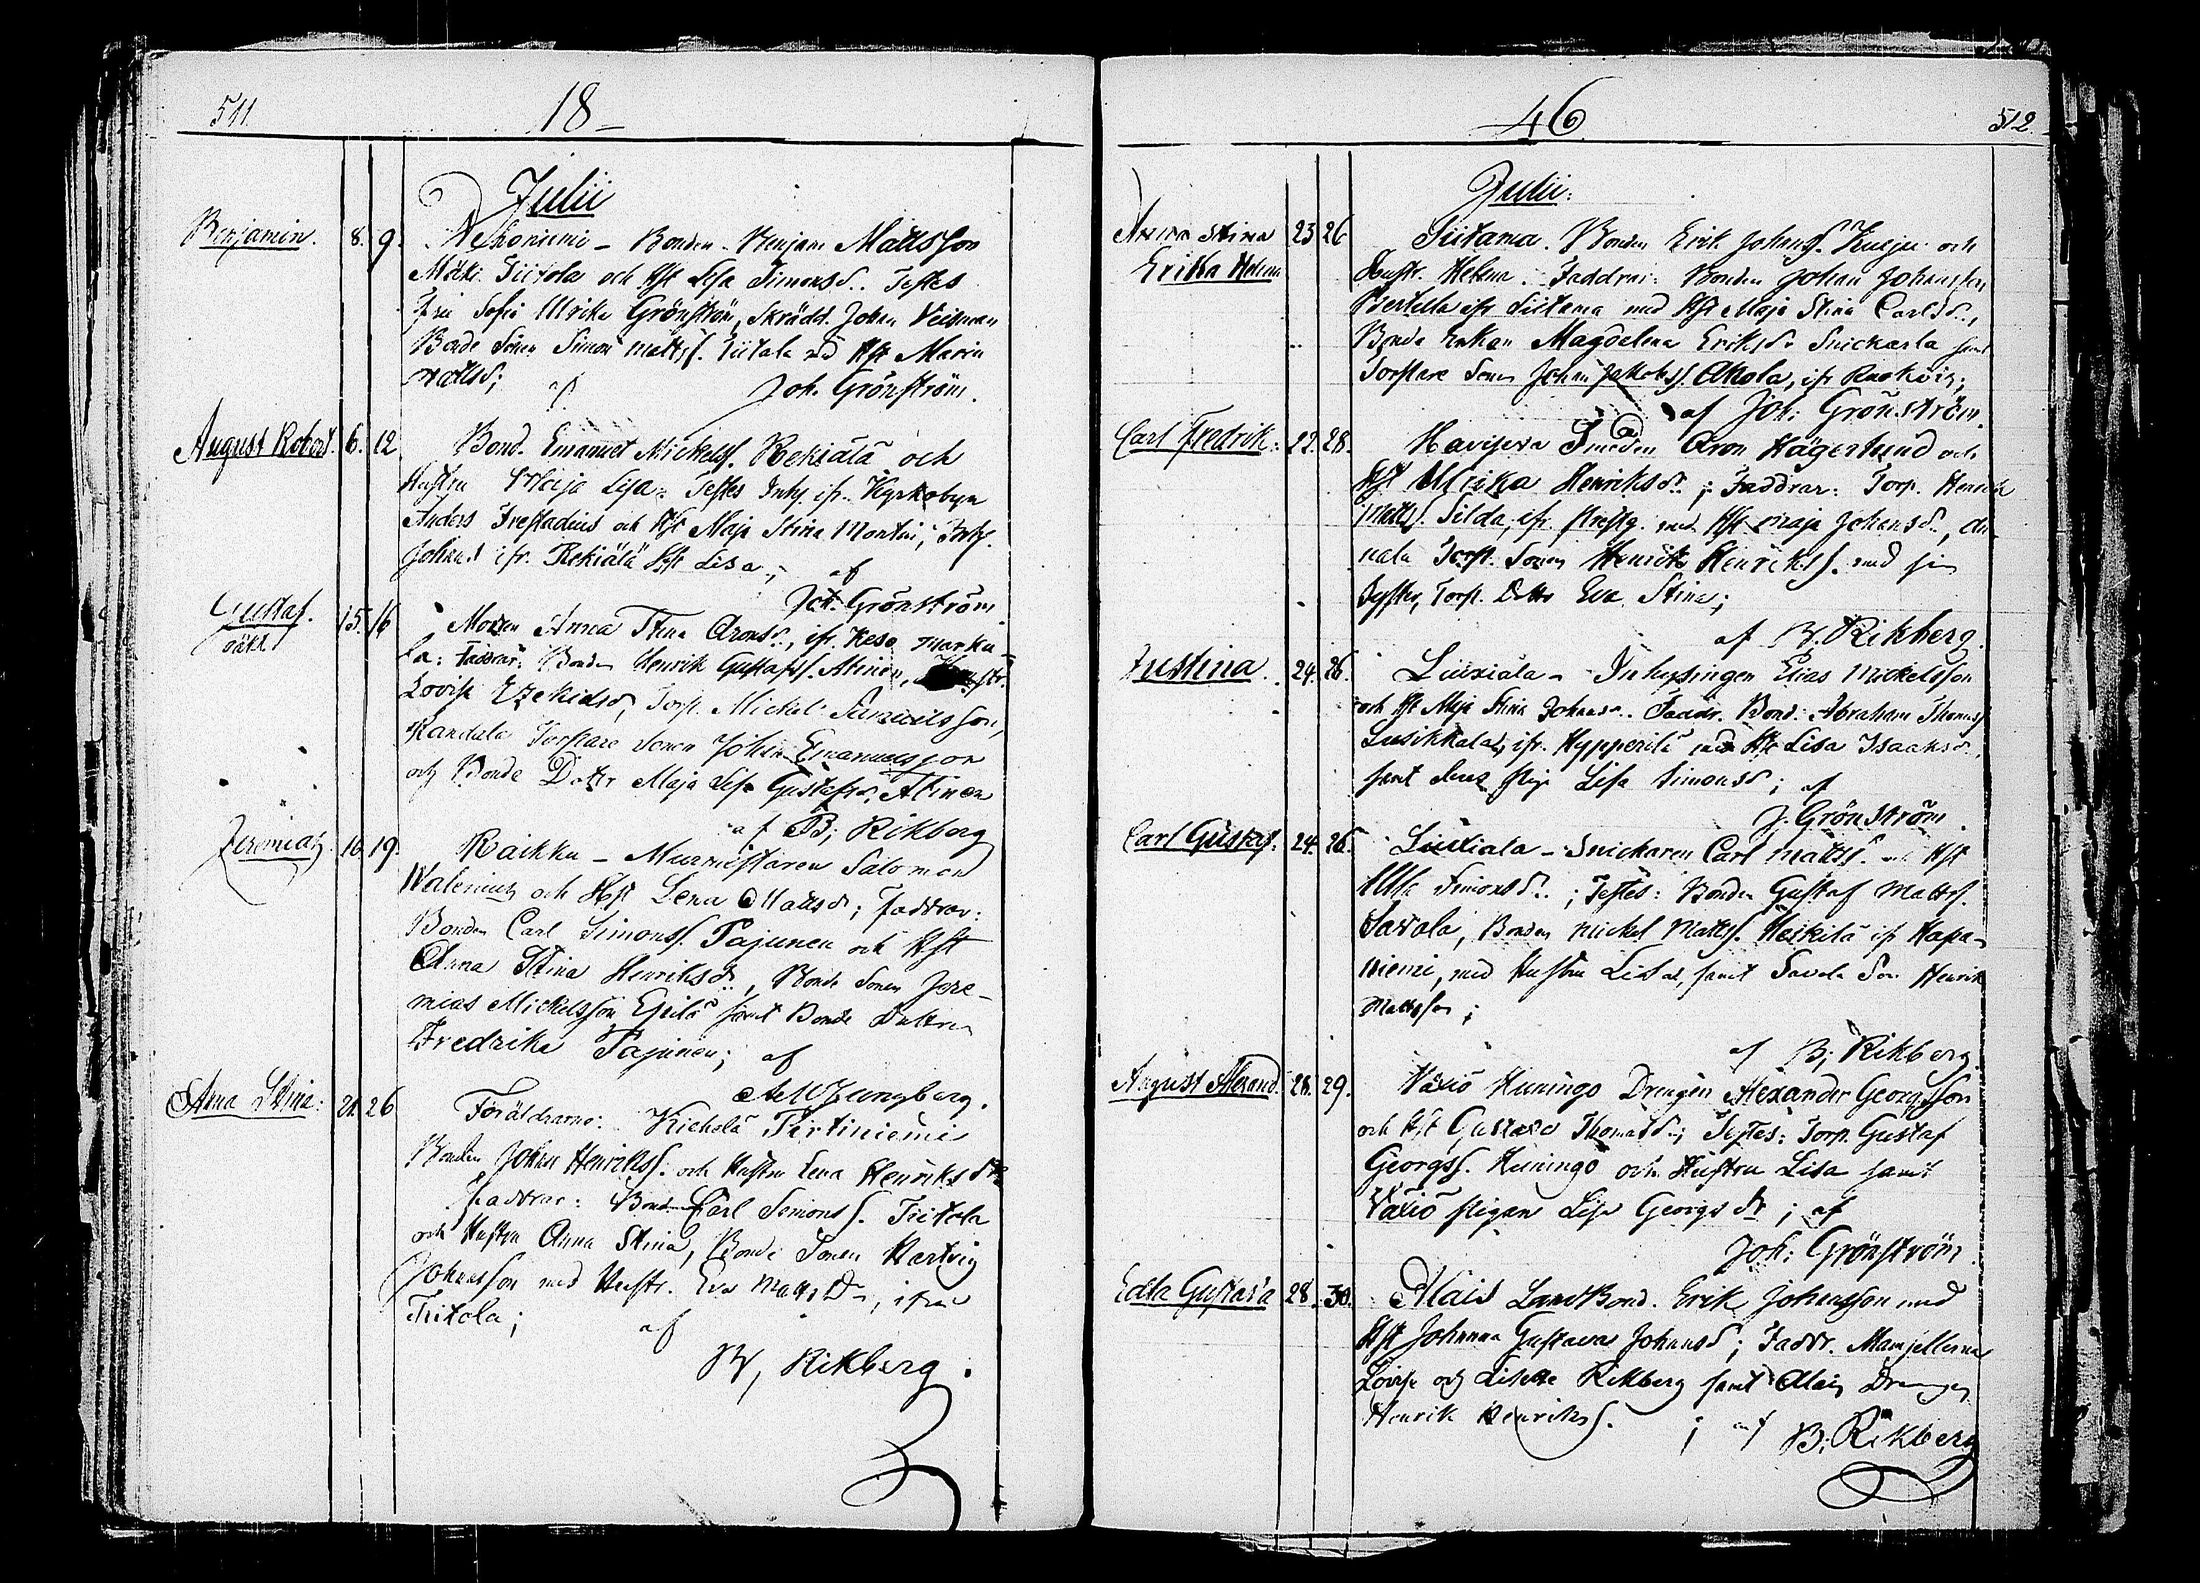 511.
18
Julii
Benjamin. 8. 9. Ahoniemi - Bonden Benjam Mattsson
Mäki Tiitola och Hst Lisa Simonsd. Testes
Fru Sofia Ulrika Grönström, Skrädd. Johan Veisman
Bonde Sonen Simon Mattss. Tiitola Hst Maria
Mattsd; af
Joh. Grönström.
August Robert. 6. 12 Bond. Emanuel Mickelss. Rekiälä och
Hustru Maja Lisa. Testes Inhs. ifr. Kyrkobyn
Anders Frestadius och Hst Maja Stina Montin; Inhs.
Johan ifr. Rekiälä Hst Lisa; af
Joh. Grönström
Gustaf. 15. 16 Moren Anna Stina Aronsd., ifr. Keso Marku-
oäkt
la: Faddrar: Bonden Henrik Gustafss. Alinen,
Lovisa Ezekielsd, Torp. Mickel Samuelsson,
Kandala Torpare Sonen Johan Emanuelsson
och Bonde Dottr Maja Lisa Gustafsd. Alinen
af B; Rikberg
Jeremias. 16. 19. Raikku - Murmästaren Salomon
Walenius och Hst Lena Mattsd; faddrar:
Bonden Carl Simonss. Pajunen och Hst
Anna Stina Henriksd., Bonde Sonen Jere-
mias Mickelsson Eskilä samt Bonde Dottren
Fredrika Pajunen; af
A W Ljungberg.
Anna Stina: 21. 26 Föräldrarne: Kicholä Pertiniemi
Bonden Johan Henrikss. och Hustru Lena Henriksdr
Faddrar: Bond Carl Simonss. Tiitola
och Hustru Anna Stina, Bonde Sonen Hartvig
Johansson med Hustr. Eva Mattsdr, ifrån
Tiitola; af
B, Rikberg.
46
512.
Julii:
Anna Stina 23 26 Siitama. Bonden Erik Johanss. Kurju och
Erika Helena
Hustr. Helena. Faddrar: Bonden Johan Johansson
Pertella ifr Siitama med Hst Maja Stina Carlsd.,
Bonde Enkan Magdalena Eriksd. Snickarla samt
Torpare Sonen Johan Jakobss. Ahola, ifr
af Joh: Grönström.
Carl Fredrik: 22. 28. Havisevа Smeden Aron Hägerlund och
Hst Ulrika Henriksdr; Faddrar: Torp. Henrik
Mattss. Silda, ifr. med Hst Maja Johansd., An-
nala Torp. Sonen Henrik Henrikss. med sin
Syster, Torp. Dottr Eva Stina;
af B. Rikberg.
Justina. 24. 26. Liuxiala - Inhysingen Elias Mickelsson
och Hst Maja Stina Johansd. Faddr. Bond. Abraham Thomass
Lusikkala, ifr. Hypperilä med Hst Lisa Isaaksd.
samt Lisa Simonsd; af
J. Grönström.
Carl Gustaf. 24. 26. Liuxiala - Snickaren Carl Mattss. och Hst
Ulla Simonsdr.; Testes: Bonden Gustaf Mattss.
Savola, Bonden Mickel Mattss. Heikilä ifr Hapa-
niemi, med Hustru Lisa, samt Savola Son Henrik
Mattsson;
af B; Rikberg.
August Alexand. 28. 29. Växiö Huningo Drengen Alexander Georgsson
och Hst Gustava Thomasdr; Testes: Torp. Gustaf
Georgss. Huningo och Hustru Lisa samt
Växiö pigan Lisa Georgsdr; af
Joh: Grönström.
Edla Gustava 28. 30. Alais LandBond. Erik Johansson med
Hst Johanna Gustava Johansd; Faddr. Mamsellerna
Lovise och Lisette Rikberg samt Alais Drengen
Henrik Henrikss.; af
B; Rikberg